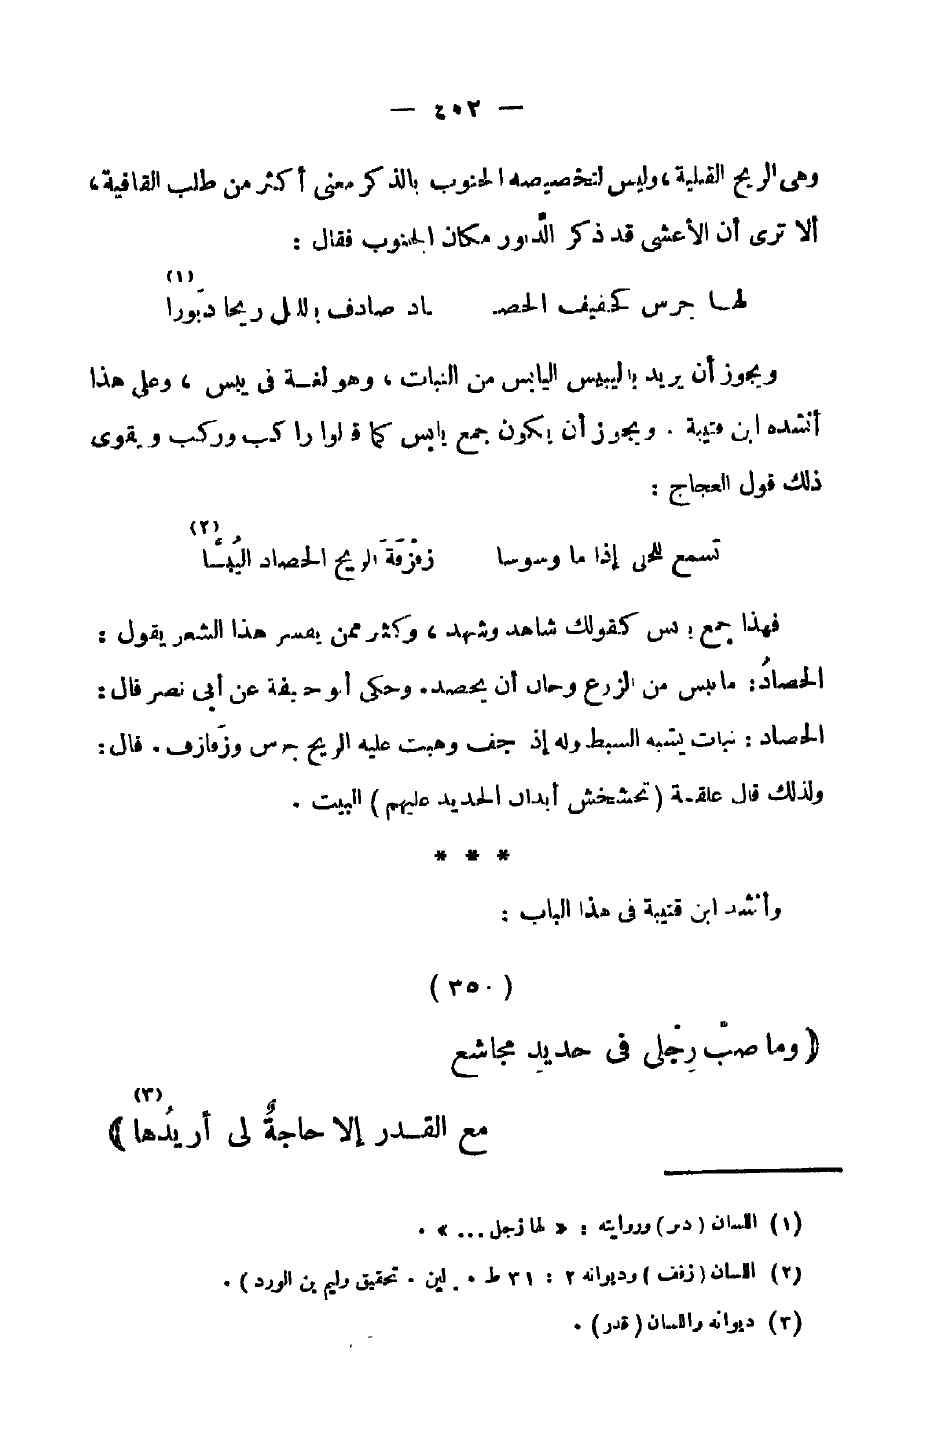 — ٤٥٢ —
وهى الريح القبلية، وليس لتخصيصه الجنوب بالذكر معنى أكثر من طلب القافية،
ألا ترى أن الأعشى قد ذكر الدَّبور مكان الجنوب فقال :
لهـا جرس كحفيف الحصـ ـاد صادف بالليل ريحا دبَورا (١)
ويجوز أن يريد باليبيس اليابس من النبات ، وهو لغـة فى يبس ، وعلى هذا
أنشده ابن قتيبة . ويجوز أن يكون جمع يابس كما قالوا راكب وركب ويقوى
ذلك قول العجاج :
تَسمع للحلى إذا ما وسوسا زفْزَفَةَ الريح الحصاد اليُبَّسا (٢)
فهذا جمع يابس كقولك شاهد وشهد ، وكثير ممن يفسر هذا الشعر يقول :
الحصادُ: ما يبس من الزرع وحان أن يحصد. وحكى أبو حنيفة عن أبى نصر قال:
الحصاد : نبات يشبه السبط وله إذا جف وهبت عليه الريح جرس وزَفازف . قال:
ولذلك قال علقمة (تخشخش أبدان الحديد عليهم) البيت .
* * *
وأنشد ابن قتيبة فى هذا الباب :
(٣٥٠)
(وما صبّ رِجْلى فى حديدِ مجاشع
مع القـدر إلا حاجةٌ لى أريدُها) (٣)
(١) اللسان (دبر) وروايته : « لها زجل... » .
(٢) اللسان (زفف) وديوانه ٢ : ٣١ ط . برلين . تحقيق وليم بن الورد) .
(٣) ديوانه واللسان (قدر) .